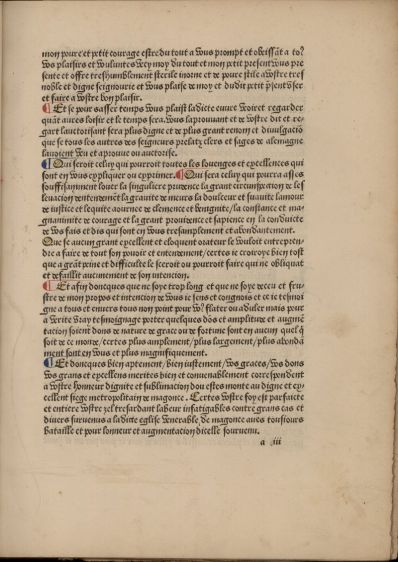 mon poure et petit courage estre du tout a vous prompt et obeissãt a to?
vos plaisirs et vouluntes voey moy du tout et mon petit present vous pre
sente et offre treshumblement sterile inorne et de poure stile a vostre tres
noble et digne seigneurie et vous plaise de moy et du dit petit psent vser
et faire a vostre bon plaisir.
Et se pour passer temps vous plaist la dicte euure veoir et regarder
qua aures loisir et le temps sera. vous lapreuuant et de vostre dit et re-
gart lauctorisant sera plus digne et de plus grant renom et diuulgacio
que se tous les autres des seigneurs prelatz clers et sages de alemagne
lauoient veu et aprouue ou auctorise.
Qui seroit celuy qui pourroit toutes les louenges et excellences qui
sont en vous expliquer ou exprimer. Qui sera celuy qui pourra asses
souffisamment louer la singuliere prudence la grant circunspection de les
leuacion dentendement la grauite de meurs la douleeur et suauite lamour
de iustice et lequite aournee de clemence et benignite/la constance et ma-
gnanimite de courage et la grant prouidence et sapience en la conduicte
de vos fais et dis qui sont en vous tresamplement et abondantement.
Que se aucun grant excellent et eloquent orateur le vouloit entrepren-
dre a faire de tout son pouoir et entendement/certes ie croiroye bien tost
que a grãt peine et difficulte le sceroit ou pourroit faire qui ne obliquat
et defaillit aucunement de son intencion.
Et afin doncques que ne soye trop long et que ne soye deceu et fru-
stre de mon propos et intencion de vous ie sens et congnois et ce ie tesmoi
gne a tous et enuers tous non point pour vo9 flater ou aduler mais pour
a verite vray tesmoignage porter quelques dos et amplitute et augme
tacion soient dons de nature de grace ou de fortune sont en aucun quel q
soit de ce monde/certes plus amplement/plus largement/plus abonda
ment sont en vous et plus magnifiquement.
Et doncques bien aptement/bien iustement/vos graces/vos dons
vos grans et excellens merites bien et conuenablement correspondent
a vostre honneur dignite et sublimacion dou estes monte au digne et ex-
cellent siege metropolitain de magonce. Certes vostre foy est parfaicte
et entiere vostre zel tresardant labeur infatigables contre grans cas et
diuers suruenus a ladicte eglise venerable de magonce aues tousiours
bataille et pour lonneur et augmentacion dicelle souruenu.
a iii